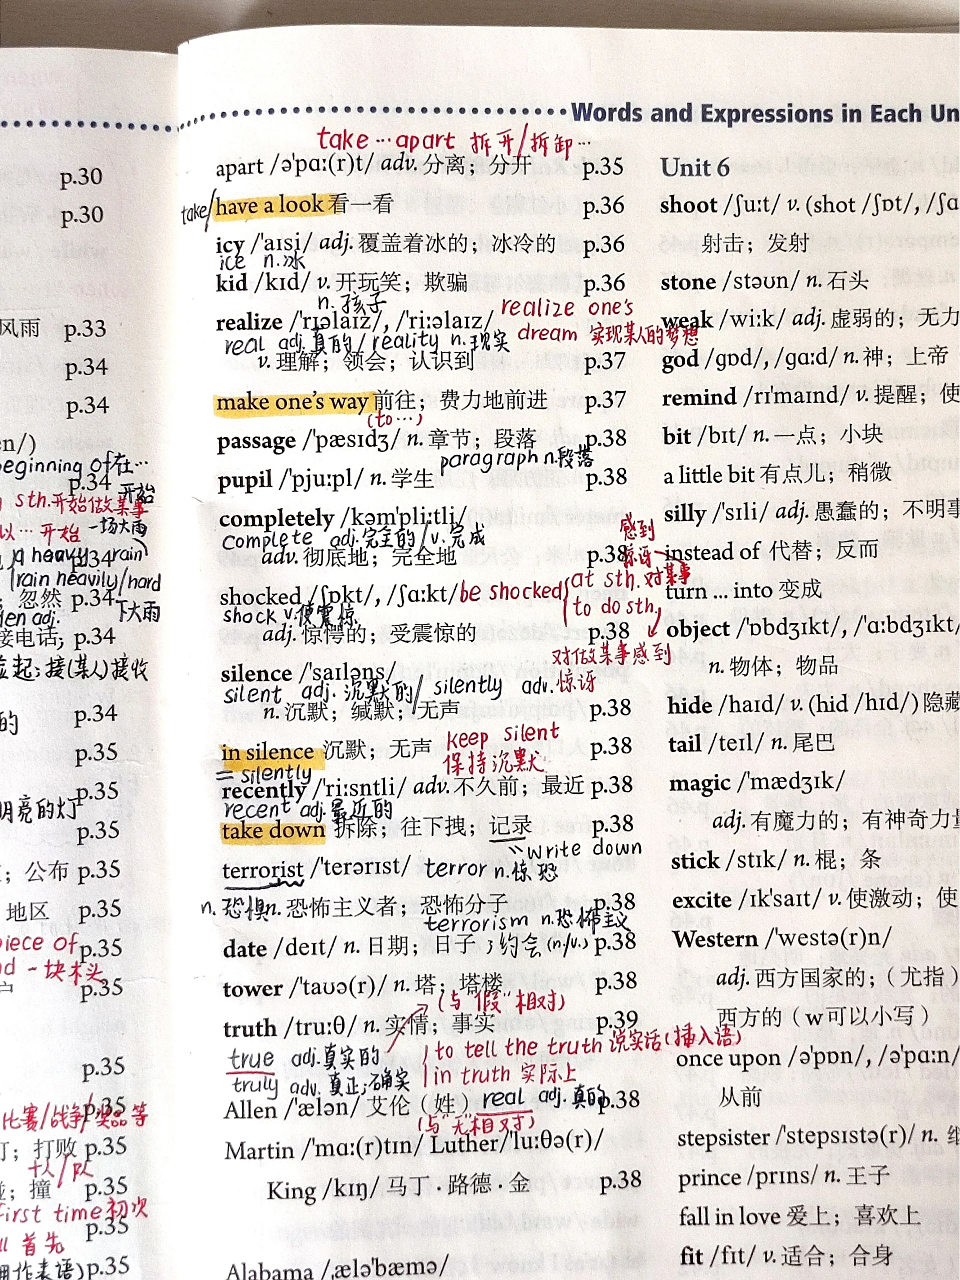 Words and Expressions in Each Un
p.30
p.30
风雨 p.33
p.34
p.34
en/)
beginning of在…
p.34 开始
sth.开始做某事
以…开始 一场大雨
a heavy rain p.34
(rain heavily/hard
；忽然 p.34 下大雨
den adj.
接电话；p.34
接(某人)接收
的 p.34
p.35
p.35
明亮的灯
p.35
；公布 p.35
地区 p.35
piece of p.35
一块木头
户 p.35
p.35
比赛/战争/奖品等
丁；打败 p.35
十人/队
撞 p.35
first time初次
p.35
首先
用作表语) p.35
take…apart 拆开/拆卸…
apart /ə'pɑ:(r)t/ adv.分离；分开 p.35
take/have a look看一看 p.36
icy /'aɪsi/ adj.覆盖着冰的；冰冷的 p.36
ice n.冰
kid /kɪd/ v.开玩笑；欺骗 p.36
n.孩子
realize /'rɪəlaɪz/, /'ri:əlaɪz/ realize one's
real adj.真的/reality n.现实 dream 实现某人的梦想
v.理解；领会；认识到 p.37
make one's way前往；费力地前进 p.37
(to…)
passage /'pæsɪdʒ/ n.章节；段落 p.38
paragraph n.段落
pupil /'pju:pl/ n.学生 p.38
completely /kəm'pli:tli/
complete adj.完全的/v.完成
adv.彻底地；完全地 p.38
shocked /ʃɒkt/, /ʃɑ:kt/ be shocked at sth.对某事感到惊讶
shock v.使震惊 to do sth.
adj.惊愕的；受震惊的 p.38
对做某事感到惊讶
silence /'saɪləns/
silent adj.沉默的/silently adv.
n.沉默；缄默；无声 p.38
in silence沉默；无声 p.38
keep silent
保持沉默
= silently
recently /'ri:sntli/ adv.不久前；最近 p.38
recent adj.最近的
take down 拆除；往下拽；记录 p.38
write down
terrorist /'terərɪst/ terror n.惊恐
n.恐惧
n.恐怖主义者；恐怖分子 p.38
terrorism n.恐怖主义
date /deɪt/ n.日期；日子；约会(n./v.) p.38
tower /'taʊə(r)/ n.塔；塔楼 p.38
(与"假"相对)
truth /tru:θ/ n.实情；事实 p.39
true adj.真实的 to tell the truth 说实话(插入语)
truly adv.真正；确实 in truth 实际上
Allen /'ælən/ 艾伦（姓） real adj.真的 p.38
(与"无"相对)
Martin /'mɑ:(r)tɪn/ Luther/'lu:θə(r)/
King /kɪŋ/ 马丁·路德·金 p.38
Alabama /ˌælə'bæmə/
Unit 6
shoot /ʃu:t/ v. (shot /ʃɒt/, /ʃɑ
射击；发射
stone /stəʊn/ n.石头
weak /wi:k/ adj.虚弱的；无力
god /gɒd/, /gɑ:d/ n.神；上帝
remind /rɪ'maɪnd/ v.提醒；使
bit /bɪt/ n.一点；小块
a little bit 有点儿；稍微
silly /'sɪli/ adj.愚蠢的；不明事
instead of 代替；反而
turn ... into 变成
object /'ɒbdʒɪkt/, /'ɑ:bdʒɪkt/
n.物体；物品
hide /haɪd/ v. (hid /hɪd/) 隐藏
tail /teɪl/ n.尾巴
magic /'mædʒɪk/
adj.有魔力的；有神奇力量
stick /stɪk/ n.棍；条
excite /ɪk'saɪt/ v.使激动；使
Western /'westə(r)n/
adj.西方国家的；（尤指）
西方的（w可以小写）
once upon /ə'pɒn/, /ə'pɑ:n/
从前
stepsister /'stepsɪstə(r)/ n.
prince /prɪns/ n.王子
fall in love 爱上；喜欢上
fit /fɪt/ v.适合；合身